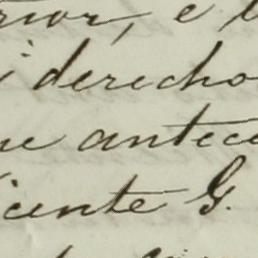 rior, e
i derecho
ue antece
icente G.